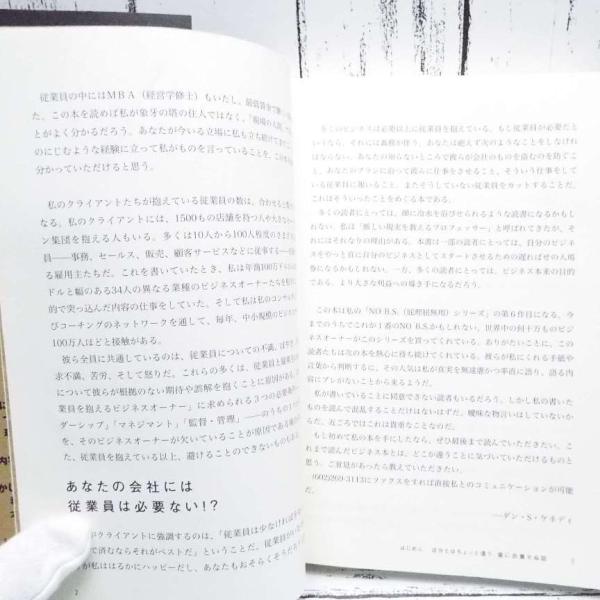 従業員の中にはMBA(経営学修士)もいたし、最低賃金で
た。この本を読めば私が象牙の塔の住人ではなく、「現場の人間」
とがよく分かるだろう。あなたが今いる立場に私も立ち続けてきた
のにじむような経験に立って私がものを言っていることを、この
分かっていただけると思う。
私のクライアントたちが抱えている従業員の数は、合わせると
なる。私のクライアントには、1500もの店舗を持つ人や大きな
ン集団を抱える人もいる。多くは10人から100人程度のさまざま
員――事務、セールス、販売、顧客サービスなどに従事する――
る雇用主たちだ。これを書いていたとき、私は年商100万ド
ドルと幅のある34人の異なる業種のビジネスオーナーたちを
的で突っ込んだ内容の仕事をしていた。そして私は私のコンサル
びコーチングのネットワークを通して、毎年、中小規模のビジネス
100万人ほどと接触がある。
彼ら全員に共通しているのは、従業員についての不満、ぼやき、
求不満、苦労、そして怒りだ。これらの多くは、従業員と雇用主
について彼らが根拠のない期待や誤解を抱くことに原因がある。
業員を抱えるビジネスオーナー」に求められる3つの必要条件
ダーシップ」「マネジメント」「監督・管理」――のうちの1つ
を、そのビジネスオーナーが欠いていることが原因である場合
た、従業員を抱えている以上、避けることのできないものもある。
あなたの会社には
従業員は必要ない!?
クライアントに強調するのは、「従業員は少なければ
で済むならそれがベストだ」ということだ。従業員がいな
私ははるかにハッピーだし、あなたもおそらくそうだろう
2
多くのビジネスは必要以上に従業員を抱えている。もし従業員が必要だと
いうなら、それには義務が伴う。あなたは絶えず次のようなことをしなけれ
ばならない。あなたの知らないところで彼らが会社のものを盗むのを防ぐこ
と、あなたのプランに沿って彼らに仕事をさせること、そういう仕事をして
いる従業員に報いること、またそうしていない従業員をカットすることだ。
これはそういったことをめぐる本である。
多くの読者にとっては、顔に冷水を浴びせられるような読書になるかもし
れない。私は「厳しい現実を教えるプロフェッサー」と呼ばれてきたが、そ
れにはそれなりの理由がある。本書は一部の読者にとっては、自分のビジネ
スをやっと真に自分のビジネスとしてスタートさせるための遅ればせの入場
券になるかもしれない。一方、多くの読者にとっては、ビジネス本来の目的
である、より大きな利益への導き手になるだろう。
この本は私の「NO B.S.(屁理屈無用)シリーズ」の第6作目になる。今
までのうちでこれが1番のNO B.S.かもしれない。世界中の何十万ものビジネ
スオーナーがこのシリーズを買ってくれている。ありがたいことに、この
読者たちは次の本を熱心に待ち続けてくれている。彼らが私にくれる手紙や
言葉から判断するに、その人気は私が真実を無遠慮かつ率直に語り、語る内
容にブレがないことから来るようだ。
私が書いていることに同意できない読者もいるだろう。しかし私の書いた
ものを読んで混乱することだけはないはずだ。曖昧な物言いはしていないか
らだ。現代においてはこれは貴重なことなのだ。
もし初めて私の本を手にしたなら、ぜひ最後まで読んでいただきたい。こ
れまで読んだビジネス本とは、どこが違うことに気づいていただけるものと
思う。ご意見があったら教えていただきたい。
(602)269-3113にファクスをすれば直接私とのコミュニケーションが可能
だ。
――ダン・S・ケネディ
はじめに